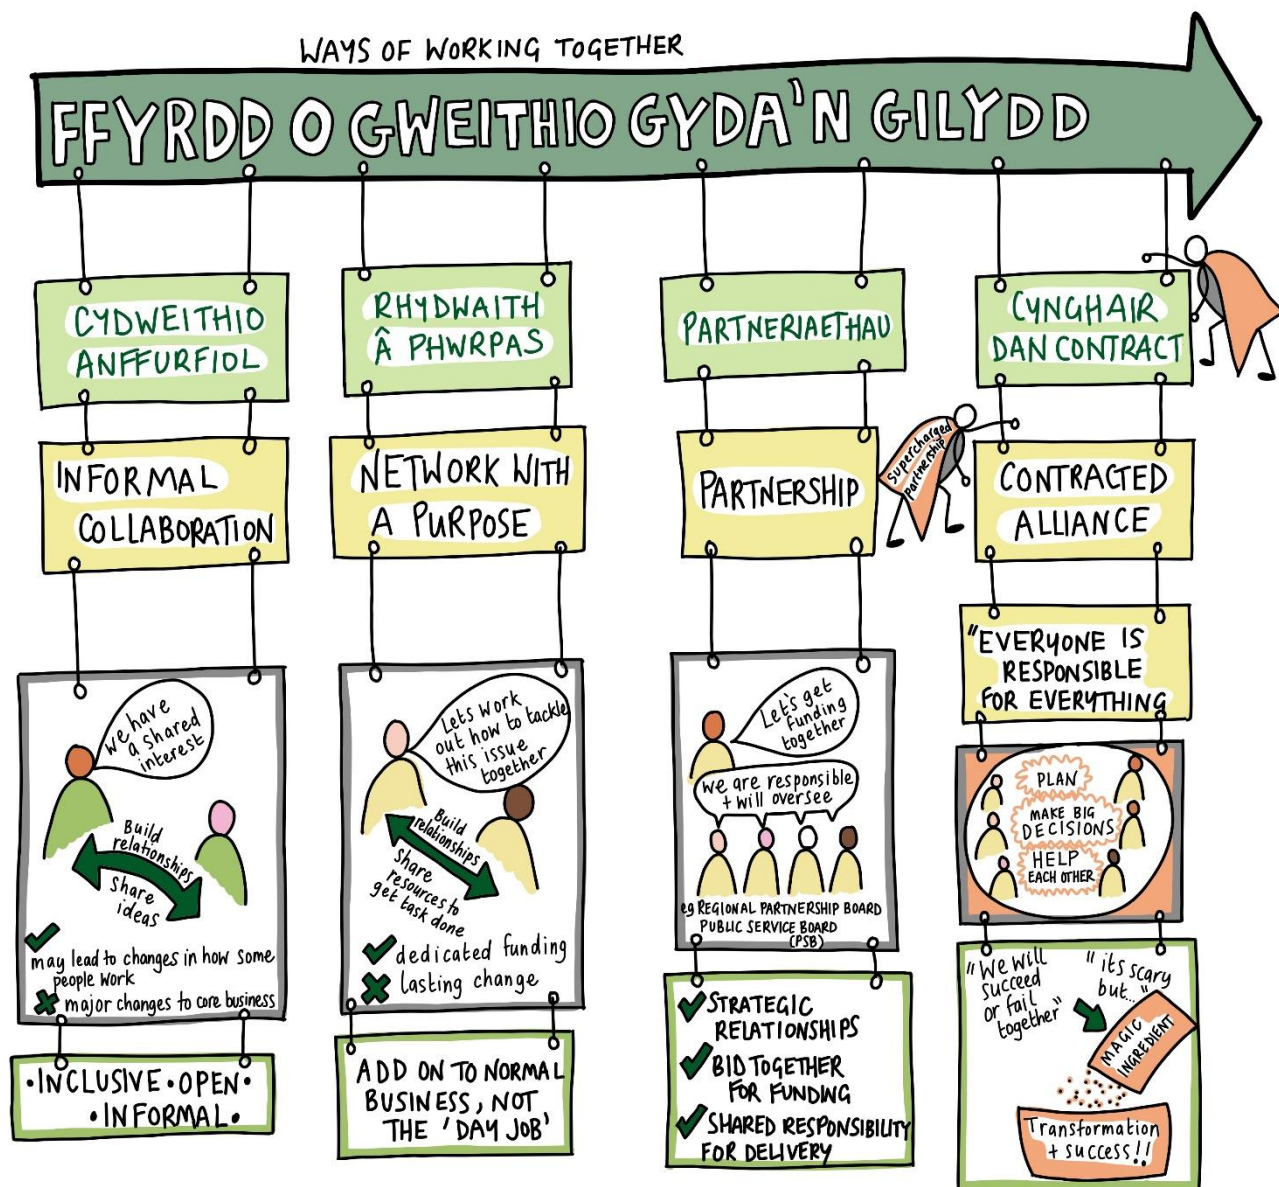 WAYS OF WORKING TOGETHER
FFYRDD O GWEITHIO GYDA'N GILYDD
CYDWEITHIO
ANFFURFIOL
INFORMAL
COLLABORATION
we have
a shared
interest
Build
relationships
Share
ideas
may lead to changes in how some
people work
major changes to core business
• INCLUSIVE • OPEN •
• INFORMAL •
RHYDWAITH
Â PHWRPAS
NETWORK WITH
A PURPOSE
Lets work
out how to tackle
this issue
together
Build
relationships
Share
resources to
get task done
dedicated funding
lasting change
ADD ON TO NORMAL
BUSINESS, NOT
THE 'DAY JOB'
PARTNERIAETHAU
PARTNERSHIP
Supercharged
partnership
Let's get
funding
together
we are responsible
+ will oversee
eg REGIONAL PARTNERSHIP BOARD
PUBLIC SERVICE BOARD
(PSB)
STRATEGIC
RELATIONSHIPS
BID TOGETHER
FOR FUNDING
SHARED RESPONSIBILITY
FOR DELIVERY
CYNGHAIR
DAN CONTRACT
CONTRACTED
ALLIANCE
"EVERYONE IS
RESPONSIBLE
FOR EVERYTHING
PLAN
MAKE BIG
DECISIONS
HELP
EACH OTHER
"We will
succeed
or fail
together"
"its scary
but..."
MAGIC
INGREDIENT
Transformation
+ success!!